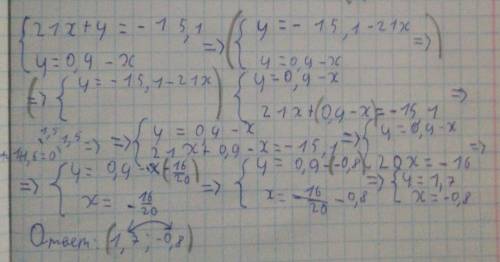 {21x+y=-15,1
y=0,9-x => ({y=-15,1-21x
y=0,9-x =>)
(=> {y=-15,1-21x) {y=0,9-x
21x+(0,9-x)=-15,1 =>
=> {y=0,9-x
21x+0,9-x=-15,1 => {y=0,9-x
20x=-16
=> {y=0,9-(-16/20)
x=-16/20 => {y=0,9-(-0,8)
x=-16/20-0,8 => {y=1,7
x=-0,8
Ответ: (1,7; -0,8)